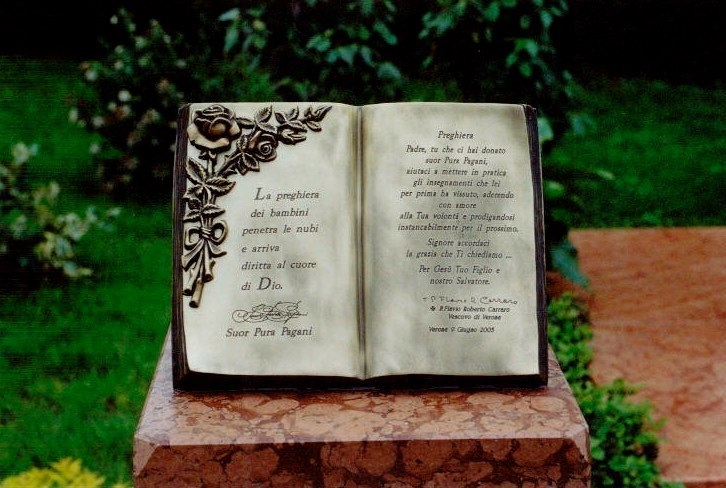 La preghiera
dei bambini
penetra le nubi
e arriva
diritta al cuore
di Dio.
Suor Pura Pagani
Preghiera
Padre, tu che ci hai donato
suor Pura Pagani,
aiutaci a mettere in pratica
gli insegnamenti che lei
per prima ha vissuto, aderendo
con amore
alla Tua volontà e prodigandosi
instancabilmente per il prossimo.
Signore accordaci
la grazia che Ti chiediamo ...
Per Gesù Tuo Figlio e
nostro Salvatore.
+ P. Flavio R. Carraro
P.Flavio Roberto Carraro
Vescovo di Verona
Verona 9 Giugno 2005